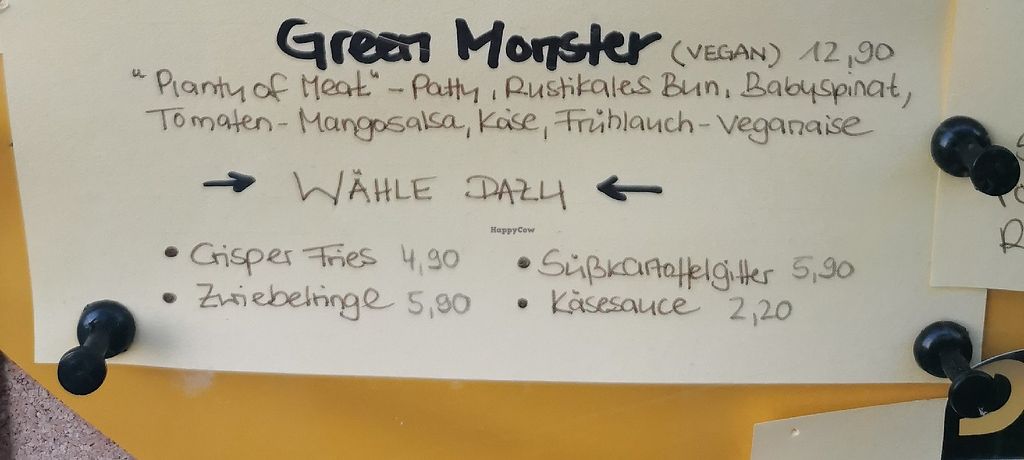 Green Monster (VEGAN) 12,90
"Planty of Meat" - Patty, Rustikales Bun, Babyspinat,
Tomaten-Mangosalsa, Käse, Frühlauch-Veganaise
→ WÄHLE DAZU ←
HappyCow
• Crisper Fries 4,90 • Süßkartoffelgitter 5,90
• Zwiebelringe 5,90 • Käsesauce 2,20